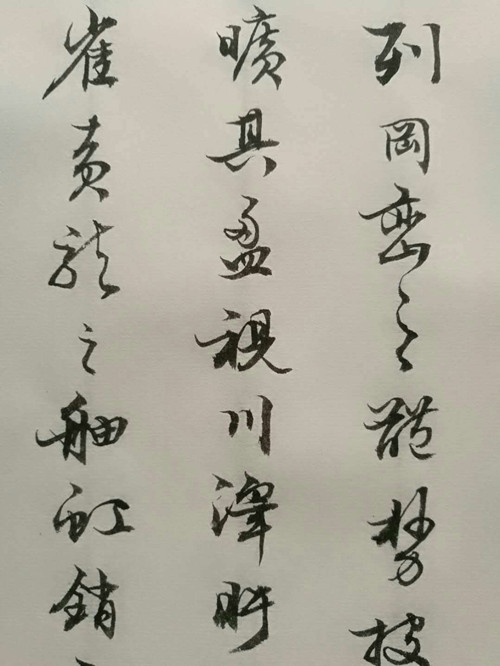 列岡巒之體勢披
曠其盈視川澤盱
雀黃龍之舳虹銷